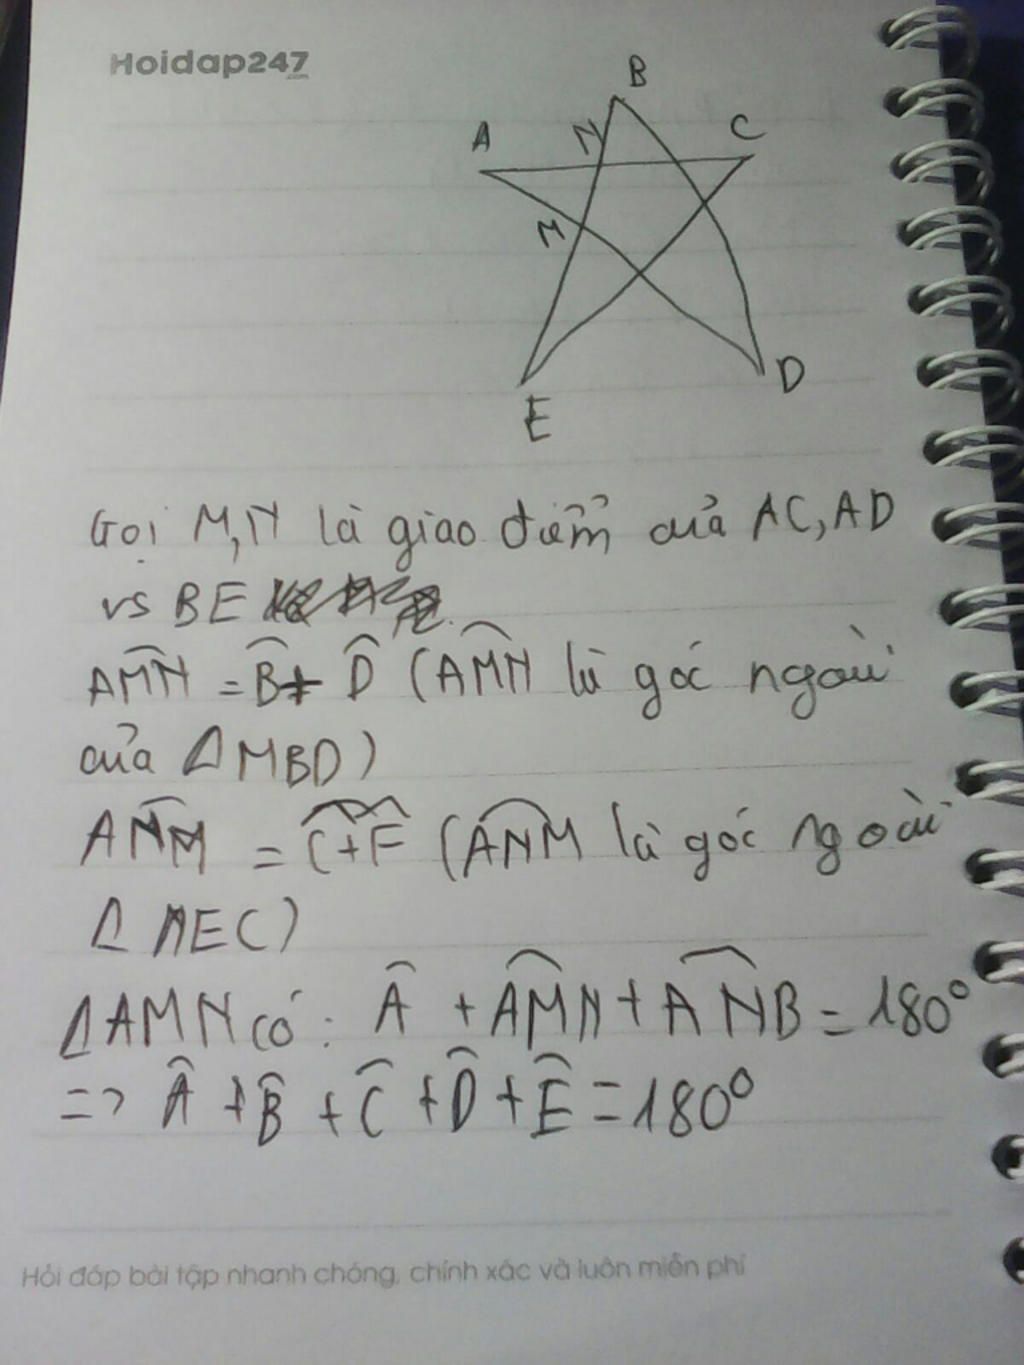 Hoidap247
.com
B
A
N
C
M
D
E
Gọi M,N là giao điểm của AC, AD
vs BE
AMN = B + D (AMN là góc ngoài
của ΔMBD)
ANM = C+E (ANM là góc ngoài
Δ NEC)
ΔAMN có: Â + AMN + ANB = 180°
=> Â + B̂ + Ĉ + D̂ + Ê = 180°
Hỏi đáp bài tập nhanh chóng, chính xác và luôn miễn phí